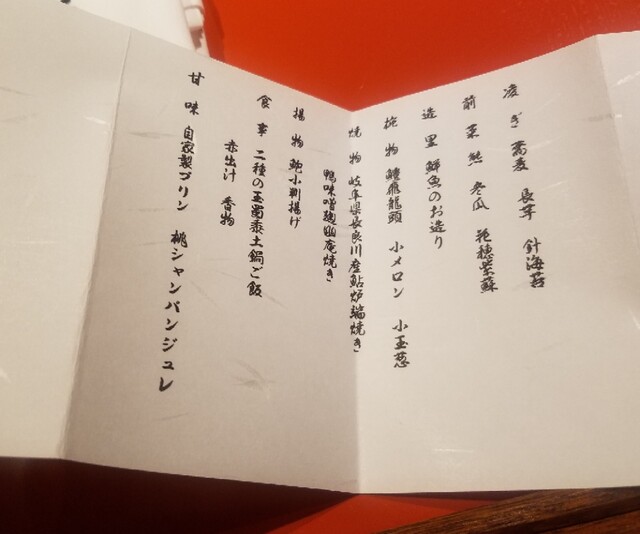 凌ぎ 蕎麦 長芋 針海苔
前菜 鮑 冬瓜 花穂紫蘇
造里 鮮魚のお造り
椀物 鱧飛龍頭 小メロン 小玉葱
焼物 岐阜県長良川産鮎炉端焼き
鴨味噌麹幽庵焼き
揚物 鮑小判揚げ
食事 二種の玉蜀黍土鍋ご飯
赤出汁 香物
甘味 自家製プリン 桃シャンパンジュレ